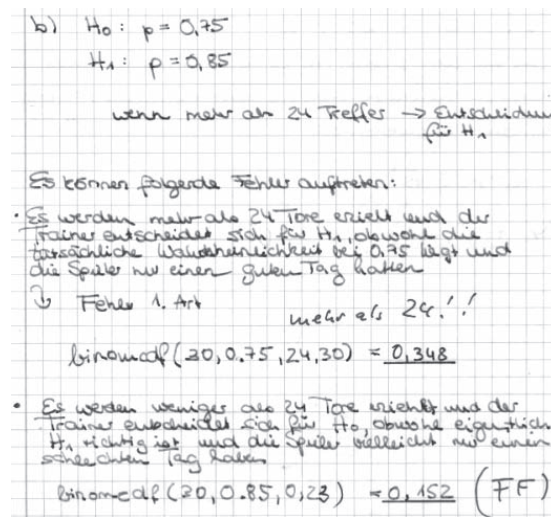 b) H₀ : p = 0,75
H₁ : p = 0,85
wenn mehr als 24 Treffer → Entscheidung
für H₁
Es können folgende Fehler auftreten:
• Es werden mehr als 24 Tore erzielt und der
Trainer entscheidet sich für H₁, obwohl die
tatsächliche Wahrscheinlichkeit bei 0.75 liegt und
die Spieler nur einen guten Tag hatten
↳ Fehler 1. Art
mehr als 24!!
binomcdf(30, 0.75, 24, 30) = 0,348
• Es werden weniger als 24 Tore erzielt und der
Trainer entscheidet sich für H₀, obwohl eigentlich
H₁ richtig ist und die Spieler vielleicht nur einen
schlechten Tag haben
binomcdf(30, 0.85, 0, 23) = 0,152 (FF)